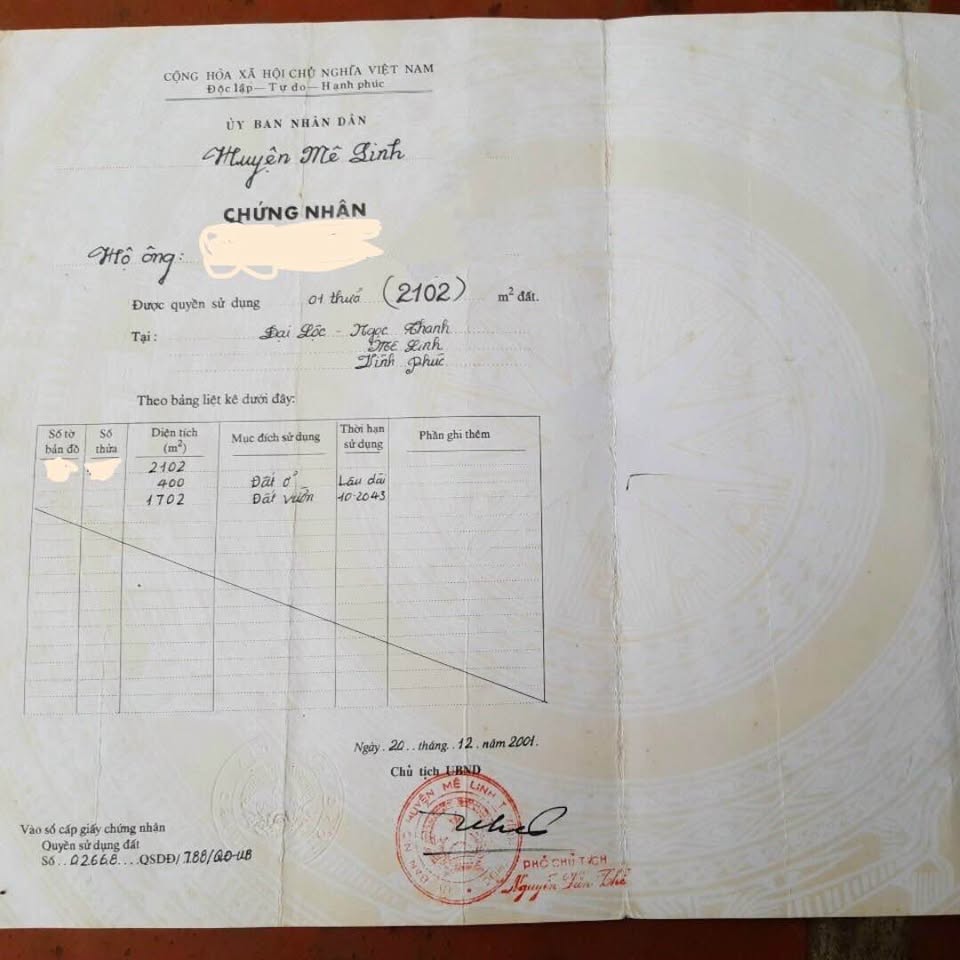 CỘNG HÒA XÃ HỘI CHỦ NGHĨA VIỆT NAM
Độc lập — Tự do — Hạnh phúc
ỦY BAN NHÂN DÂN
Huyện Mê Linh
CHỨNG NHẬN
Hộ ông:
Được quyền sử dụng 01 thửa (2102) m² đất.
Tại: Đại Lộc - Ngọc Thanh
Mê Linh
Vĩnh Phúc
Theo bảng liệt kê dưới đây:
Số tờ bản đồ Số thửa Diện tích (m²) Mục đích sử dụng Thời hạn sử dụng Phần ghi thêm
2102
400 Đất ở Lâu dài
1702 Đất vườn 10-2043
Ngày 20 tháng 12 năm 2001.
Chủ tịch UBND
HUYỆN MÊ LINH
PHÓ CHỦ TỊCH
Vào sổ cấp giấy chứng nhận
Quyền sử dụng đất
Số 02668 QSDĐ/788/QĐ-UB